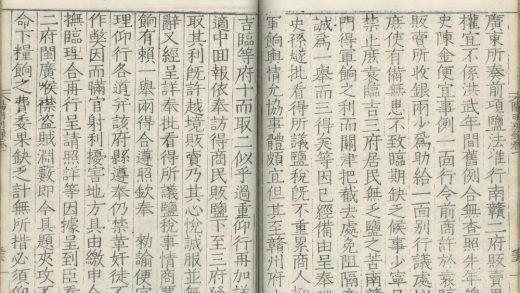 廣東所奏前項鹽法准行南贛二府販賣果
權宜不係洪武年間舊例合無查照先年
史陳金便宜事例一面行令前商許於袁
販賣所收銀兩少為助給一面別行議處
庶使有備無患不致臨期缺乏候事少寧
禁止庶袁臨吉三府居民無乏鹽之苦南贛
門得軍餉之利而關津把截去處免阻隔
誠為一舉而三得矣等因已經備由呈奉
史孫批看得所議鹽稅既不重累商人
軍餉輿情允協事體頗宜但其至贛州府
吉臨等府十而取二似乎過重仰行再加詳
適中回報依奉訪得商民販鹽下至三府發
取其利既許越境販賣乃其心悅誠服並無
辭又經呈詳奉批看得所議鹽稅事情商
餉有賴一舉兩得合遵照欽奉 勑諭便宜
理仰行各道并該府縣遵奉仍禁革奸徒不
作弊因而瞞官射利擾害地方具由繳申
撫臨理合再行呈請照詳等因據呈到臣
二府閩廣喉襟盜賊淵藪即今具題夾攻不
命下糧餉之費委果缺乏計無所措必須仰